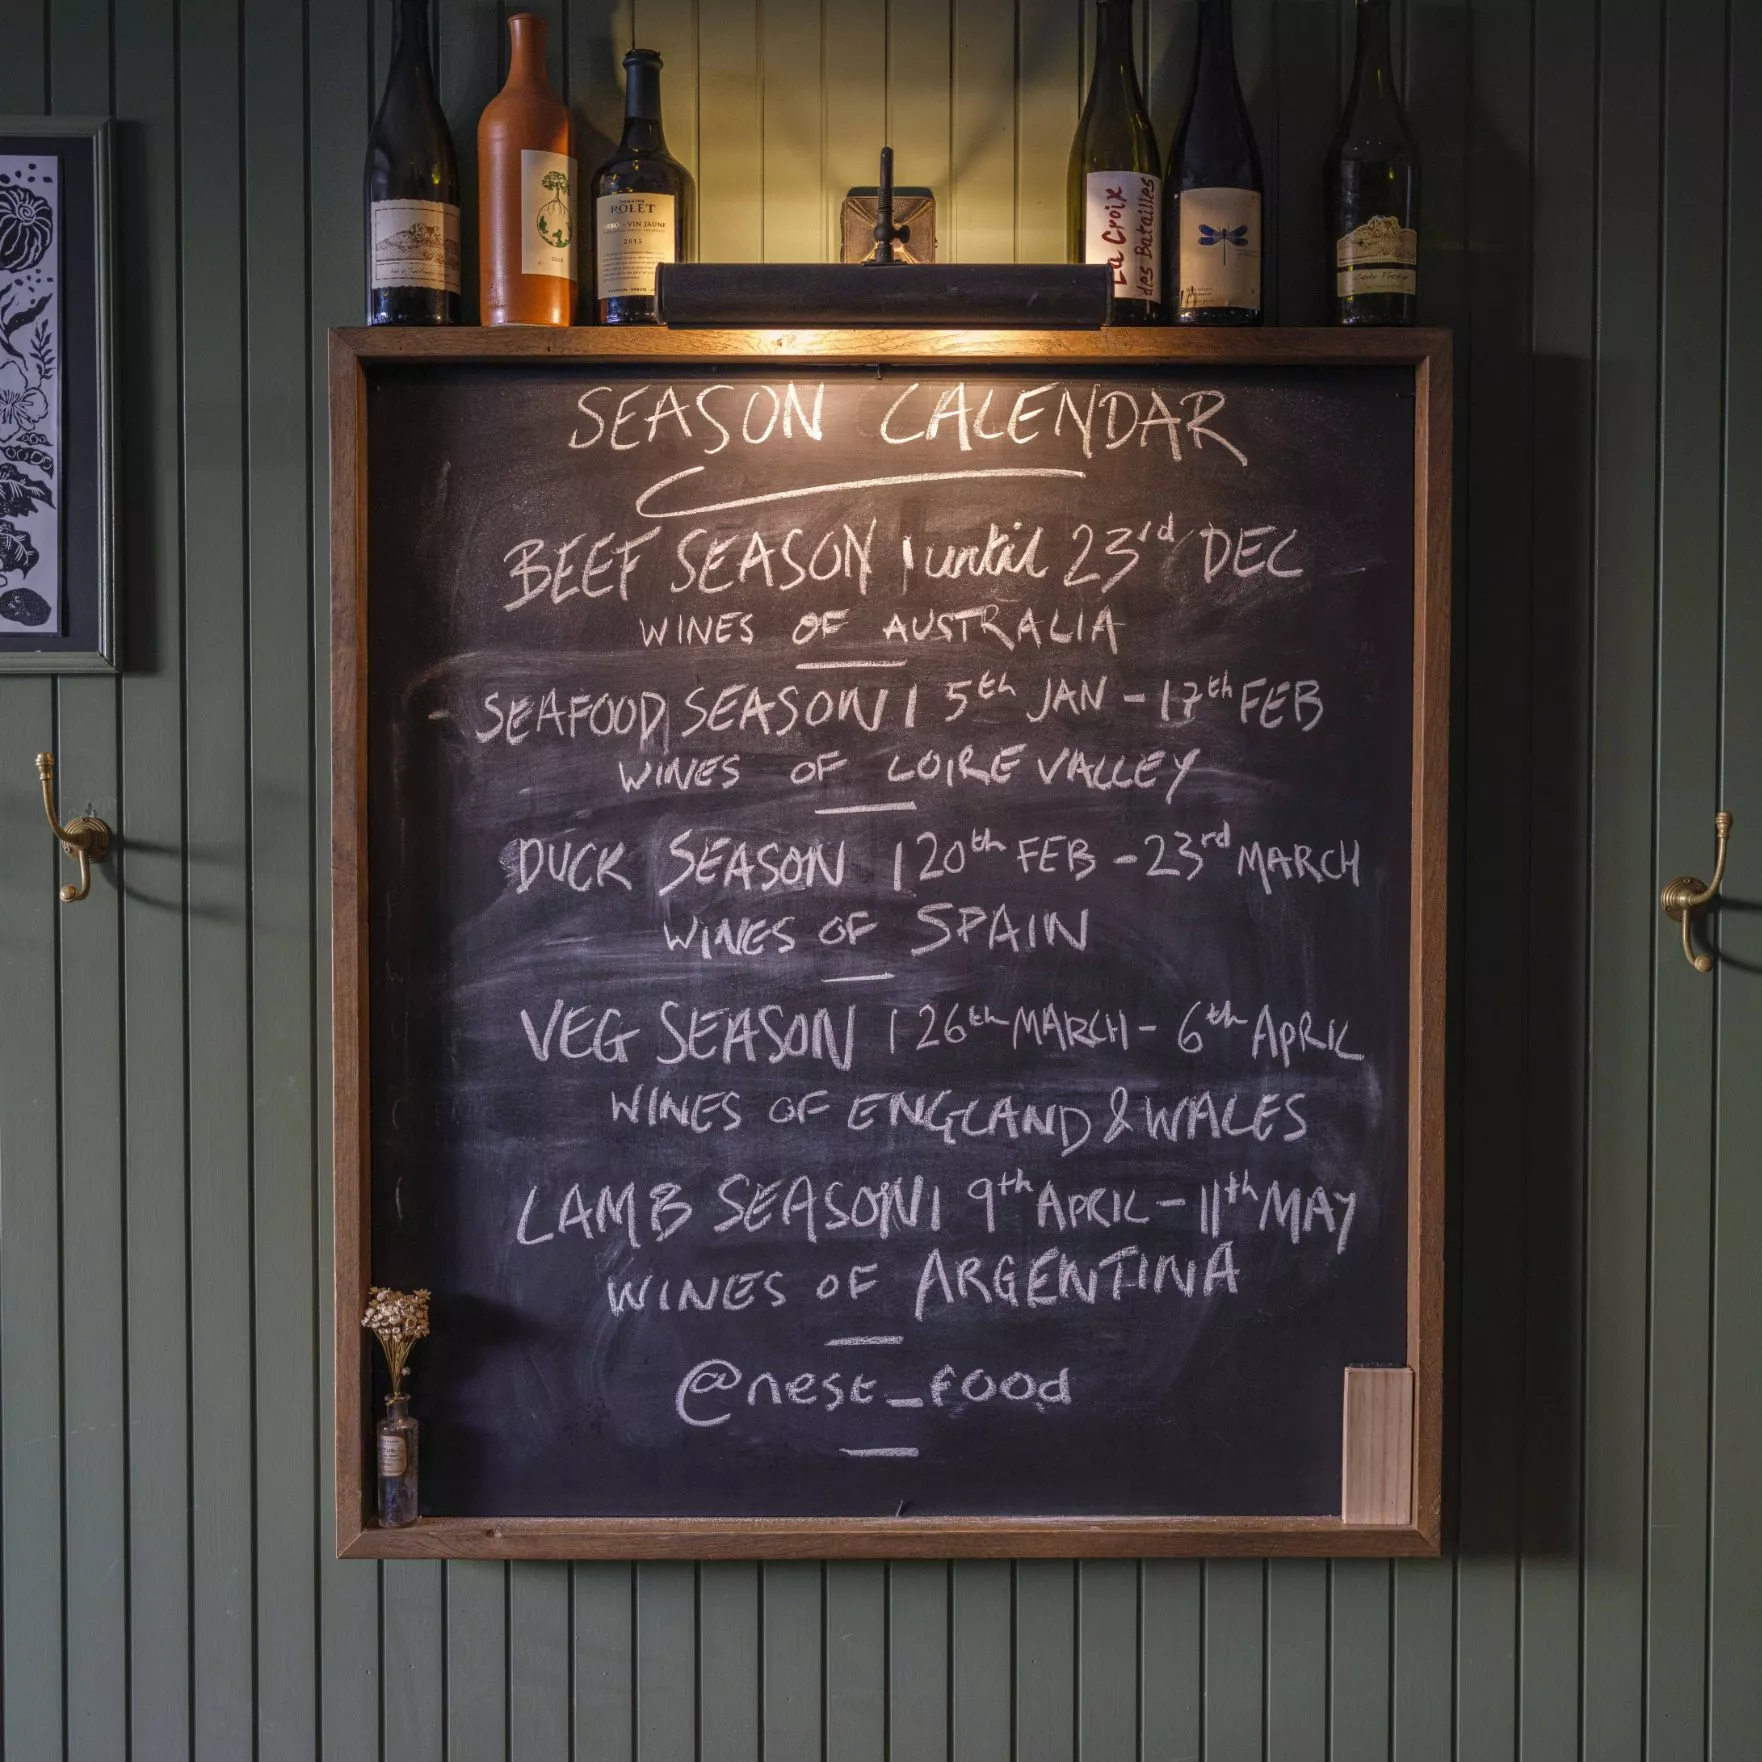 DOMAINE
ROLET
VIN JAUNE
2015
La Croix
des Batailles
SEASON CALENDAR
BEEF SEASON | until 23rd DEC
WINES OF AUSTRALIA
SEAFOOD SEASON | 5th JAN - 17th FEB
WINES OF LOIRE VALLEY
DUCK SEASON | 20th FEB - 23rd MARCH
WINES OF SPAIN
VEG SEASON | 26th MARCH - 6th APRIL
WINES OF ENGLAND & WALES
LAMB SEASON | 9th APRIL - 11th MAY
WINES OF ARGENTINA
@nest_food